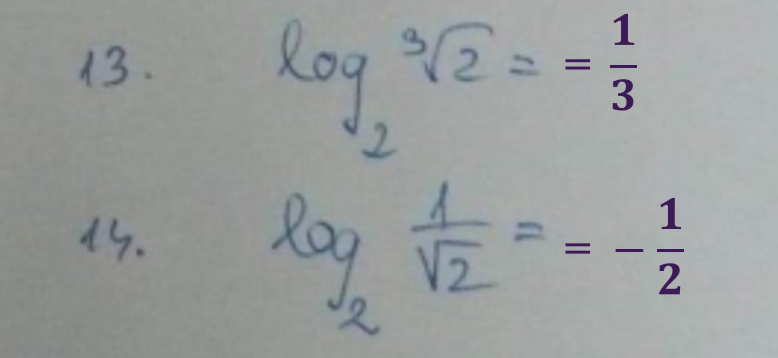 13. log₂ ∛2 = = 1/3
14. log₂ 1/√2 = = − 1/2